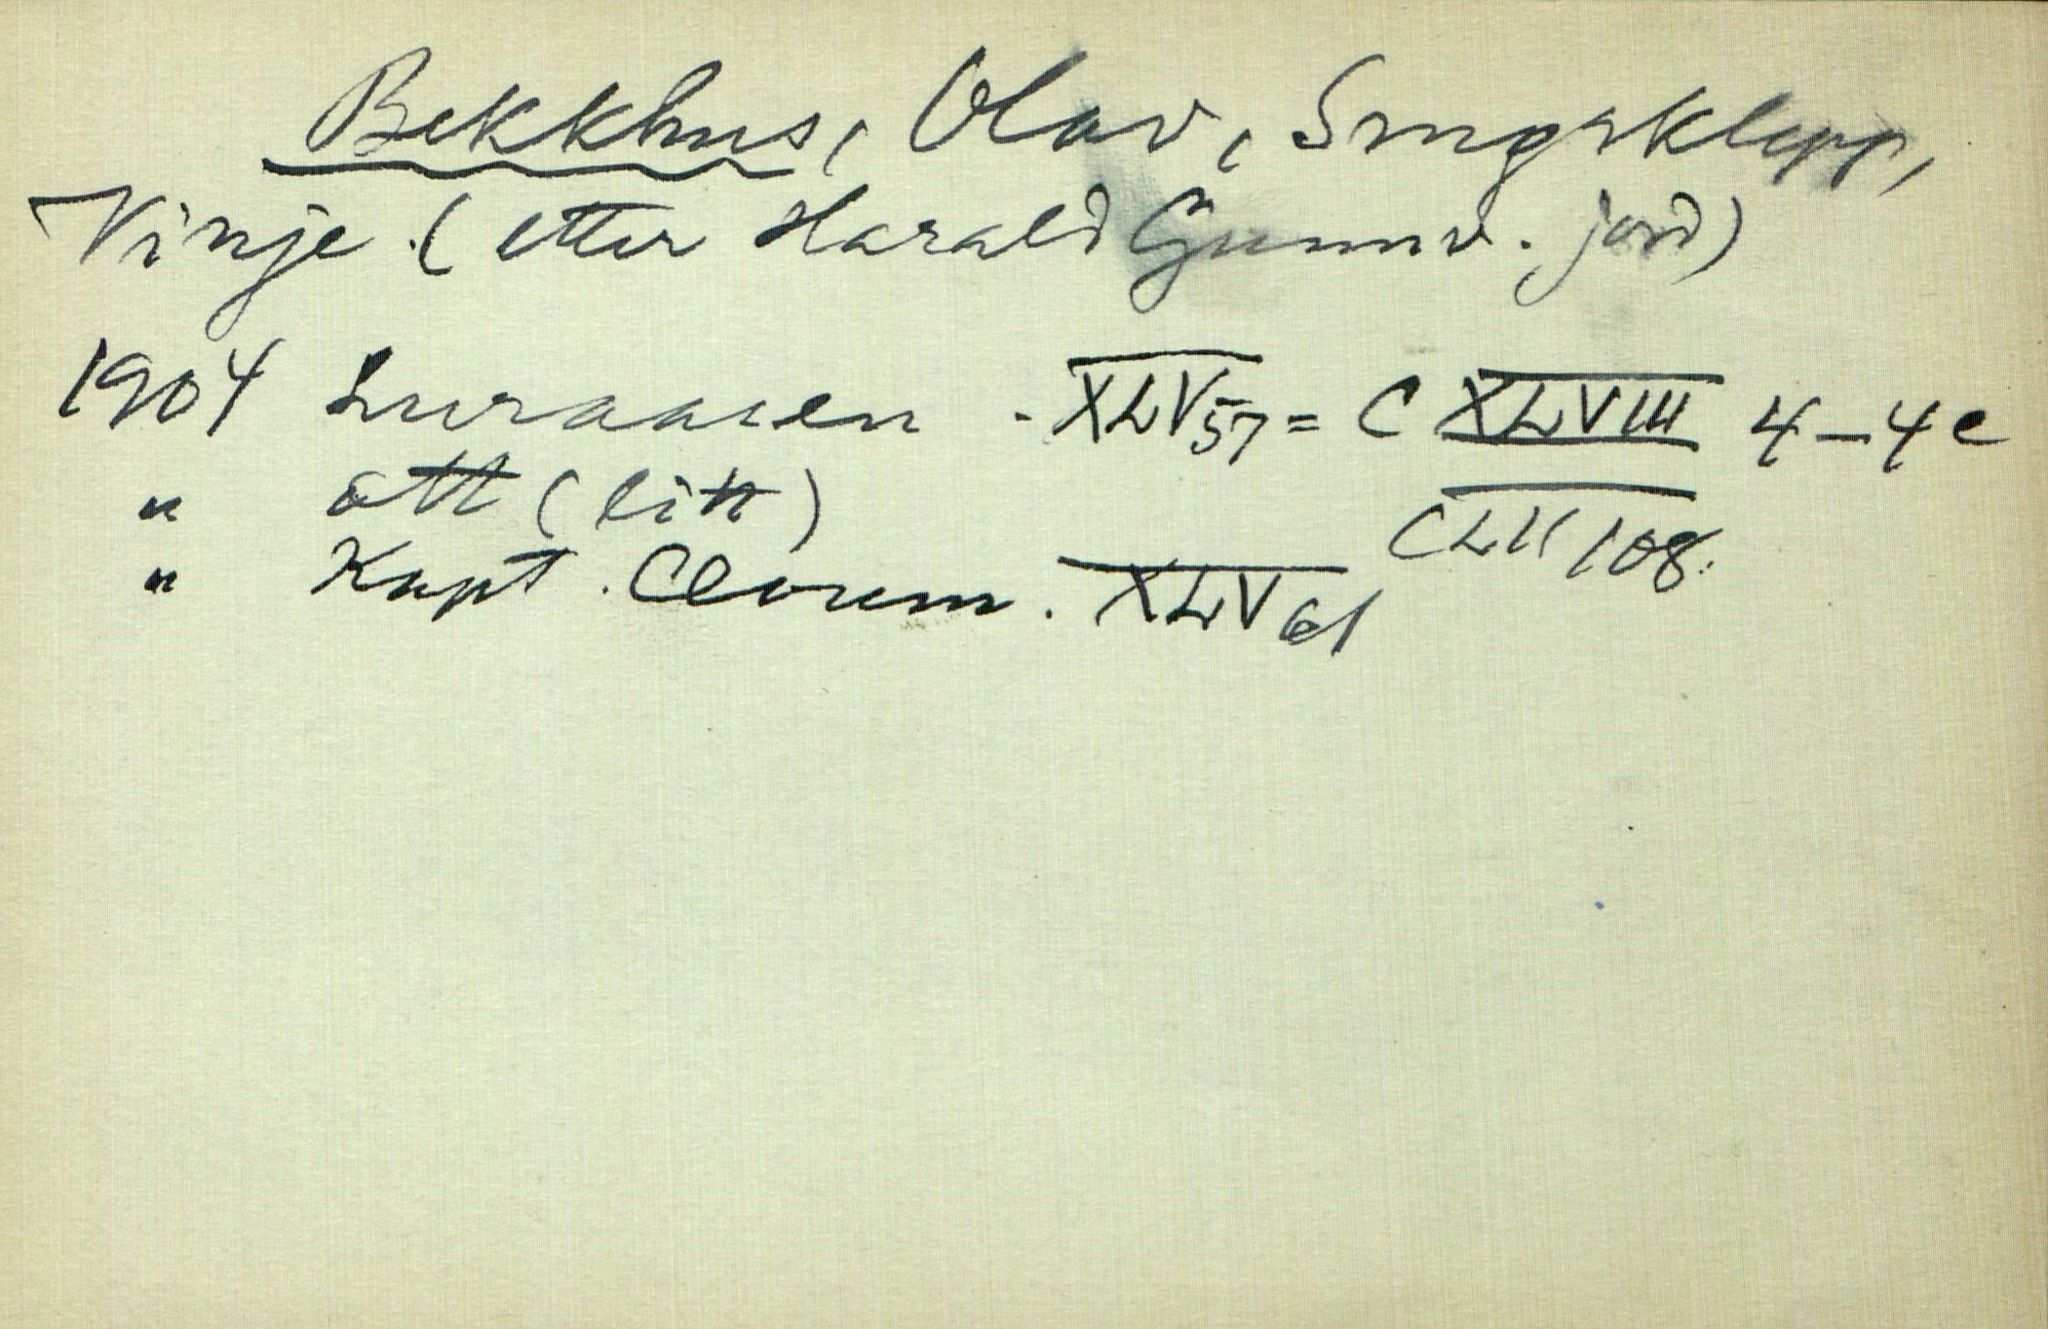 Bekkhus, Olav, Smørklepp,
Vinje. (etter Harald Gunnv. jord)
1904 Luraasen - XLV 57 = CXLVIII 4-4e
" ætt (litt) CLII 108.
" Kapt. XLV 61